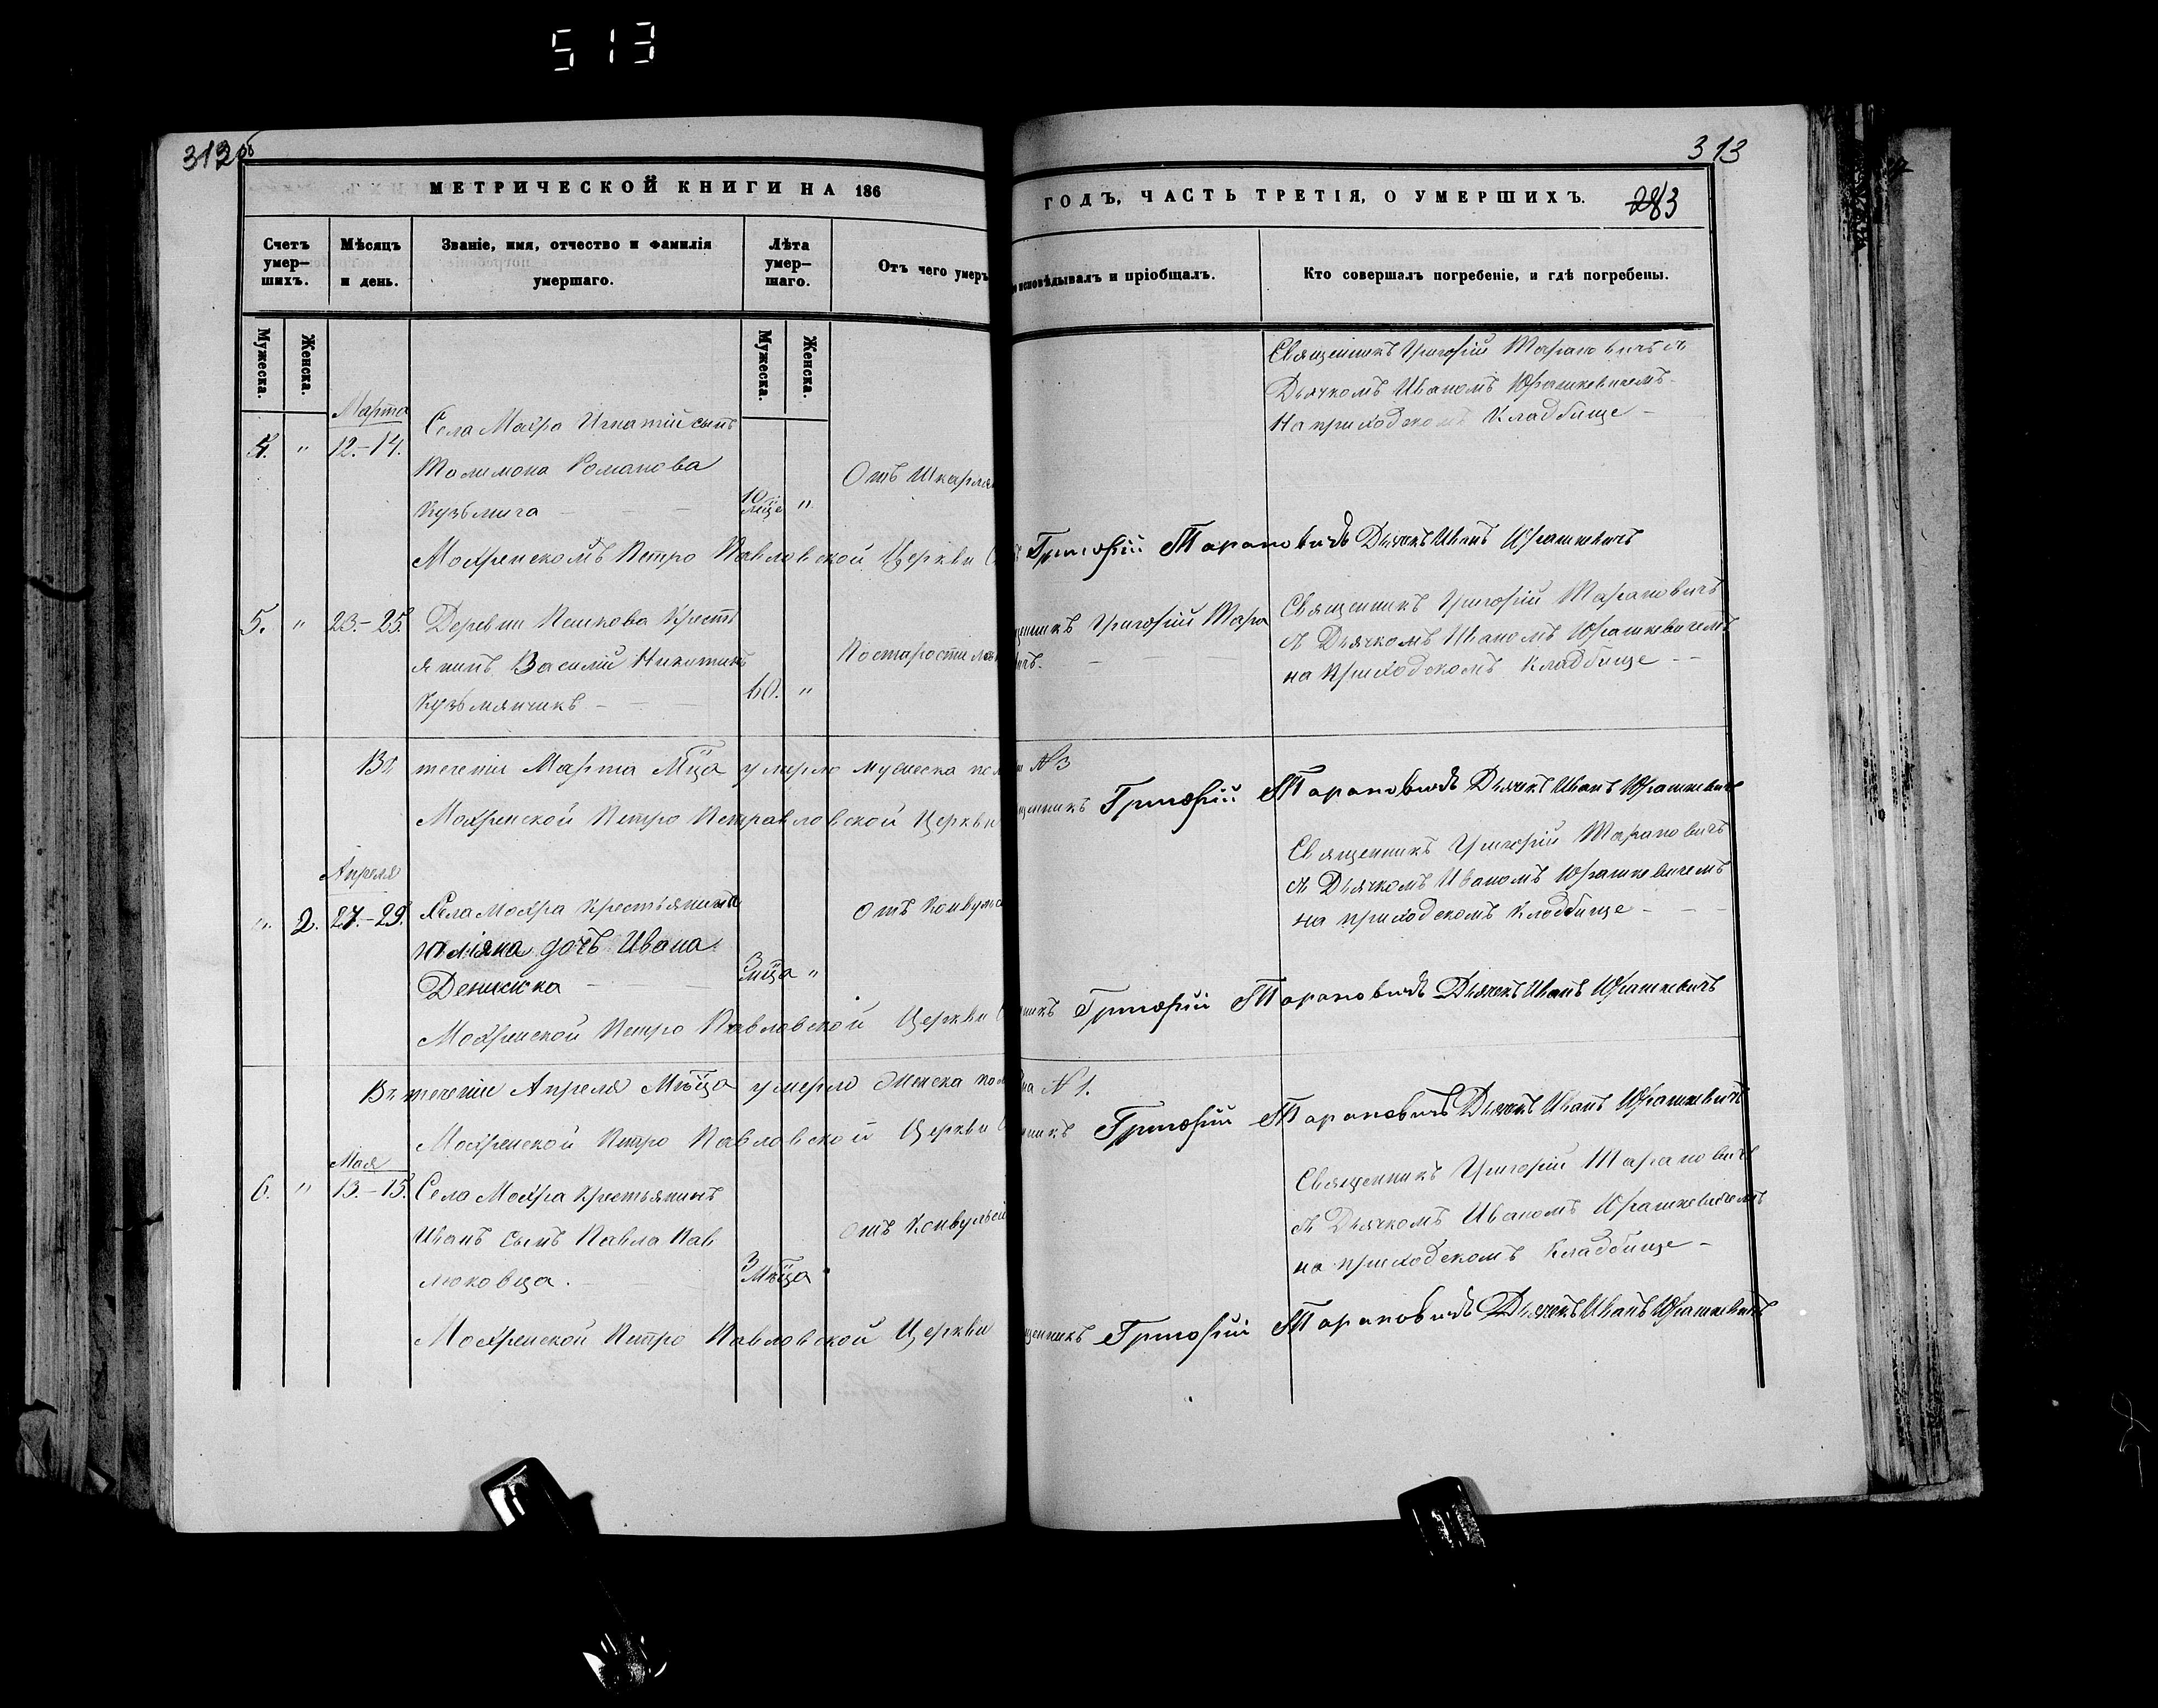 513
312 об
313
МЕТРИЧЕСКОЙ КНИГИ НА 186
ГОДЪ, ЧАСТЬ ТРЕТІЯ, О УМЕРШИХЪ.
283
Счетъ умер—шихъ.
Мѣсяцъ и день.
Званіе, имя, отчество и фамилія умершаго.
Лѣта умер—шаго.
Отъ чего умеръ
исповѣдывалъ и пріобщалъ.
Кто совершалъ погребеніе, и гдѣ погребены.
Мужеска.
Женска.
Мужеска.
Женска.
Священникъ Григорій Тарановичъ съ
Дьячкомъ Иваномъ Юрашкевичемъ
На приходскомъ Кладбище —
Марта
4. " 12.–14. Села Мохра Игнатій сынъ
Филимона Романова
Кузьмича
10 мѣце "
Отъ Шкарла
Мохренскомъ Петро Павловской Церкви
Григорій Тарановичъ Дьячекъ Иванъ Юрашкевичъ
5. " 23.–25. Деревни Пешкова Крест
янинъ Василій Никитинъ
Кузьмянчикъ —
60. "
По старости
Григорій Тара
Священникъ Григорій Тарановичъ
съ Дьячкомъ Иваномъ Юрашкевичемъ
на Приходскомъ Кладбище —
Въ теченіи Марта Мѣца умерло мужеска пола
№ 3
Мохренской Петро Церкви
Григорій Тарановичъ Дьячекъ Иванъ Юрашкевичъ
Апреля
". 2. 27.–29. Села Мохра Крестьянина
дочь Ивана
3 мѣца "
отъ Конвульс
Священникъ Григорій Тарановичъ
съ Дьячкомъ Иваномъ Юрашкевичемъ
на приходскомъ Кладбище —
Мохренской Петро Павловской Церкви
Григорій Тарановичъ Дьячекъ Иванъ Юрашкевичъ
Въ теченіи Апреля Мѣца умерло Женска пола
№ 1.
Мохренской Петро Павловской Церкви
Григорій Тарановичъ Дьячекъ Иванъ Юрашкевичъ
Мая
6. " 13.–15. Села Мохра Крестьянинъ
Иванъ сынъ Павла Пав
люковца.
3 Мѣца
отъ Конвульсій
Священникъ Григорій Тарановичъ
съ Дьячкомъ Иваномъ Юрашкевичемъ
на приходскомъ Кладбище —
Мохренской Петро Павловской Церкви
Григорій Тарановичъ Дьячекъ Иванъ Юрашкевичъ